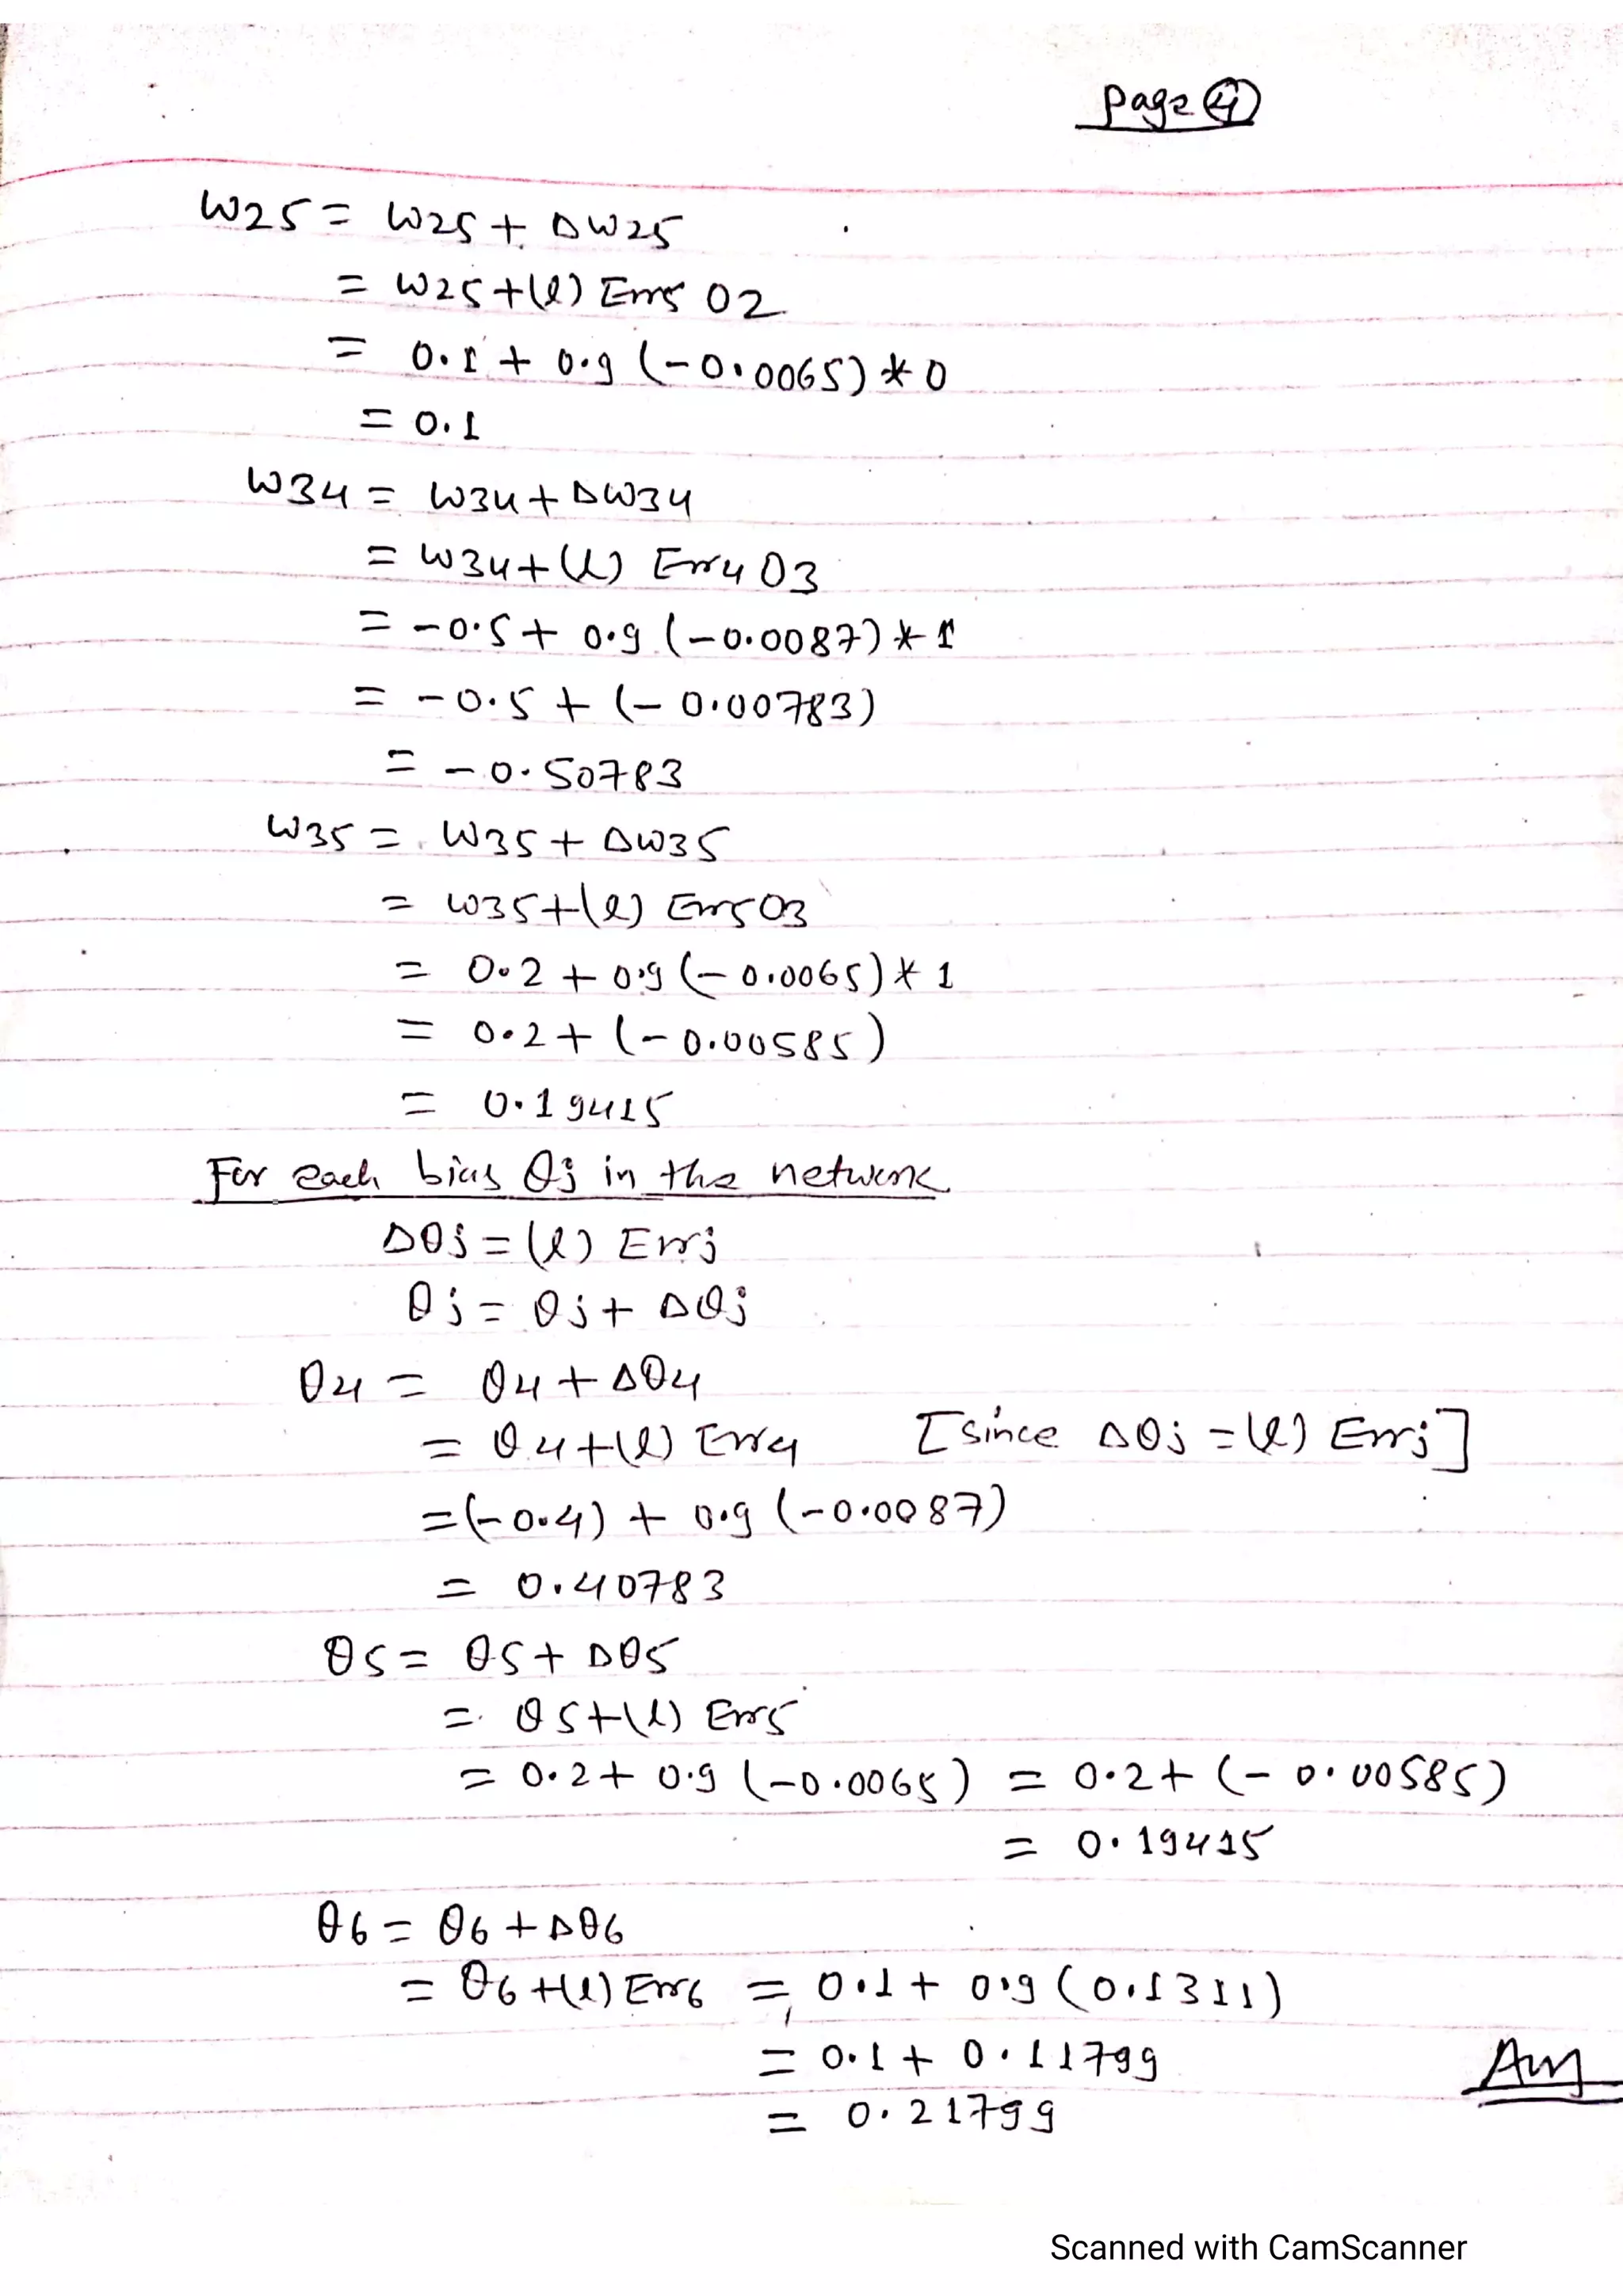 Page ④
W25 = W25 + ΔW25
= W25+(l) Err5 O2
= 0.1 + 0.9 (-0.0065) * 0
= 0.1
W34 = W34 + ΔW34
= W34+(l) Err4 O3
= -0.5 + 0.9 (-0.0087) * 1
= -0.5 + (-0.00783)
= -0.50783
W35 = W35 + ΔW35
= W35+(l) Err5 O3
= 0.2 + 0.9 (-0.0065) * 1
= 0.2 + (-0.00585)
= 0.19415
For each bias θj in the network
Δθj = (l) Errj
θj = θj + Δθj
θ4 = θ4 + Δθ4
= θ4+(l) Err4 [since Δθj = (l) Errj]
= (-0.4) + 0.9 (-0.0087)
= 0.40783
θ5 = θ5 + Δθ5
= θ5+(l) Err5
= 0.2 + 0.9 (-0.0065) = 0.2 + (-0.00585)
= 0.19415
θ6 = θ6 + Δθ6
= θ6+(l) Err6 = 0.1 + 0.9 (0.1311)
= 0.1 + 0.11799 Ans
= 0.21799
Scanned with CamScanner